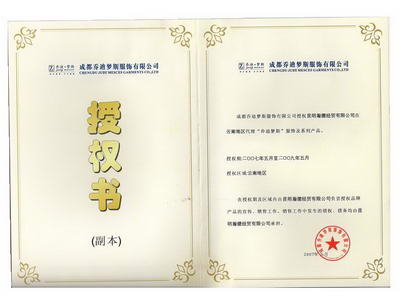 乔迪·梦斯
成都乔迪梦斯服饰有限公司
CHENGDU JUDY MESCES GARMENTS CO.,LTD
授权书
(副本)
乔迪·梦斯
成都乔迪梦斯服饰有限公司
CHENGDU JUDY MESCES GARMENTS CO.,LTD
成都乔迪梦斯服饰有限公司授权昆明瀚健经贸有限公司在
云南地区代理“乔迪梦斯”服饰及系列产品。
授权期:二○○七年五月至二○○九年五月
授权区域:云南地区
在授权期及区域内由昆明瀚健经贸有限公司负责授权品牌
产品的宣传、销售工作。销售工作中发生的债权、债务均由昆
明瀚健经贸有限公司承担。